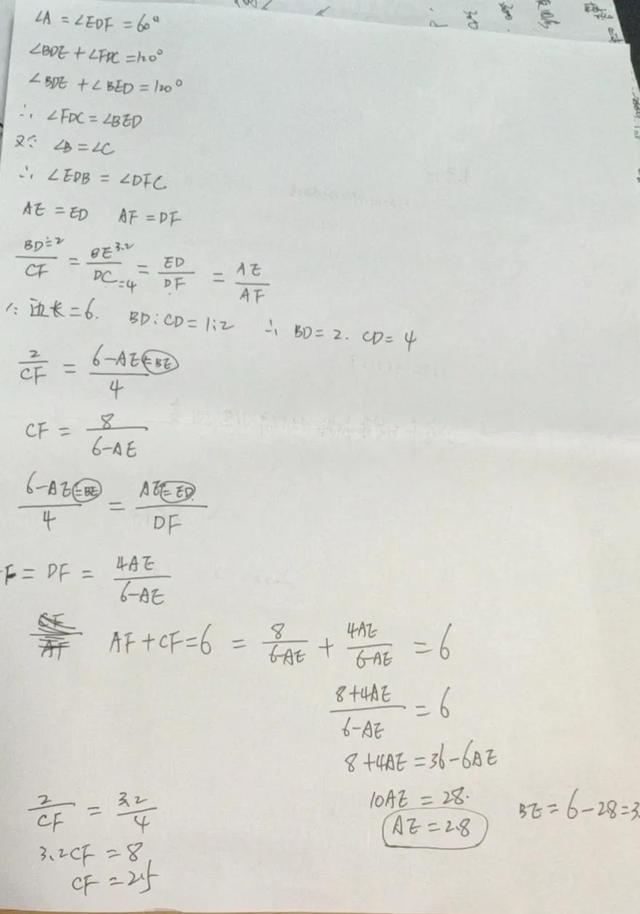 ∠A = ∠EDF = 60°
∠BDE + ∠FDC = 120°
∠BDE + ∠BED = 120°
∴ ∠FDC = ∠BED
又∵ ∠B = ∠C
∴ ∠EDB = ∠DFC
AE = ED AF = DF
BD=2/CF = BE3.2/DC=4 = ED/DF = AE/AF
∵ 边长 = 6. BD:CD = 1:2 ∴ BD = 2. CD = 4
2/CF = 6-AE=BE/4
CF = 8/6-AE
6-AE=BE/4 = AE=ED/DF
F = DF = 4AE/6-AE
AF + CF = 6 = 8/6-AE + 4AE/6-AE = 6
8+4AE/6-AE = 6
8+4AE = 36-6AE
10AE = 28.
AE = 2.8
BE = 6-28=3.
2/CF = 3.2/4
3.2CF = 8
CF = 2.5